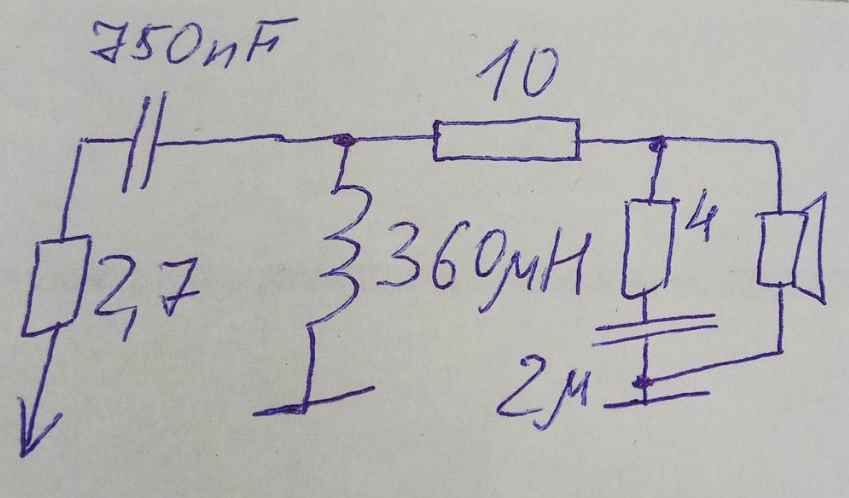 750nF
10
2,7
360μH
4
2μ